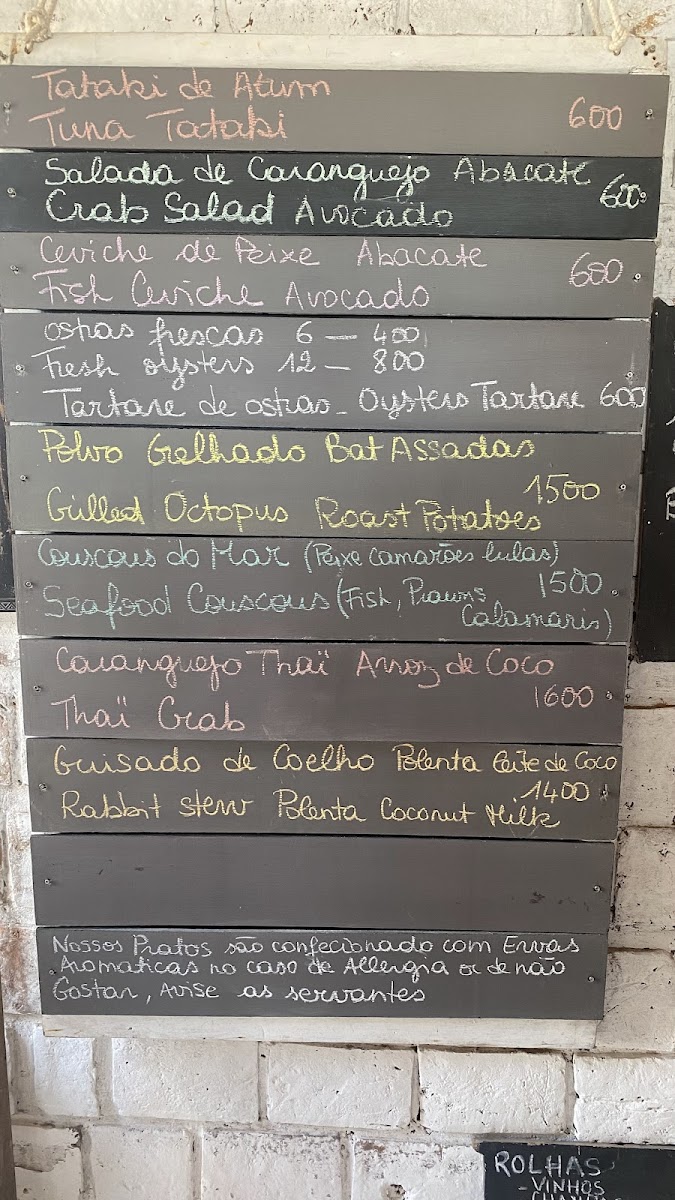 Tataki de Atum
Tuna Tataki 600
Salada de Caranguejo Abacate
Crab Salad Avocado 600
Ceviche de Peixe Abacate
Fish Ceviche Avocado 600
ostras frescas 6 — 400
Fresh oysters 12 — 800
Tartare de ostras - Oysters Tartare 600
Polvo Grelhado Bat Assadas
1500
Grilled Octopus Roast Potatoes
Couscous do Mar (Peixe camarões lulas)
Seafood Couscous (Fish, Prawns 1500
Calamaris)
Caranguejo Thaï Arroz de Coco
1600
Thaï Crab
Guisado de Coelho Polenta leite de Coco
1400
Rabbit stew Polenta Coconut Milk
Nossos Pratos são confecionado com Ervas
Aromaticas no caso de Allergia or de não
Gostar, Avise as servantes
ROLHAS
- VINHOS